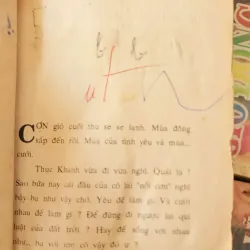 b b
u t
CƠN gió cuối thu se se lạnh. Mùa đông
sắp đến rồi. Mùa của tình yêu và mùa...
cưới.
Thục Khanh vừa đi vừa nghĩ. Quái lạ ?
Sao bữa nay cái đầu của cô lại "nổi cơn" nghĩ
bậy bạ như vậy chớ. Yêu để làm gì. Và cưới
nhau để làm gì ? Để đừng đi ngược lại qui
luật của đất trời ? Hay để sống với nhau
như... ba với mẹ cô vậy đó ư ?